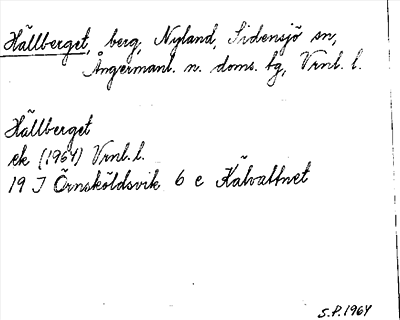 Hällberget, berg, Nyland, Sidensjö sn,
Ångermanl. n. doms. tg, Vrnl. l.
Hällberget
ek (1964) Vrnl. l.
19 J Örnsköldsvik 6 e Kälvattnet
S.P. 1964